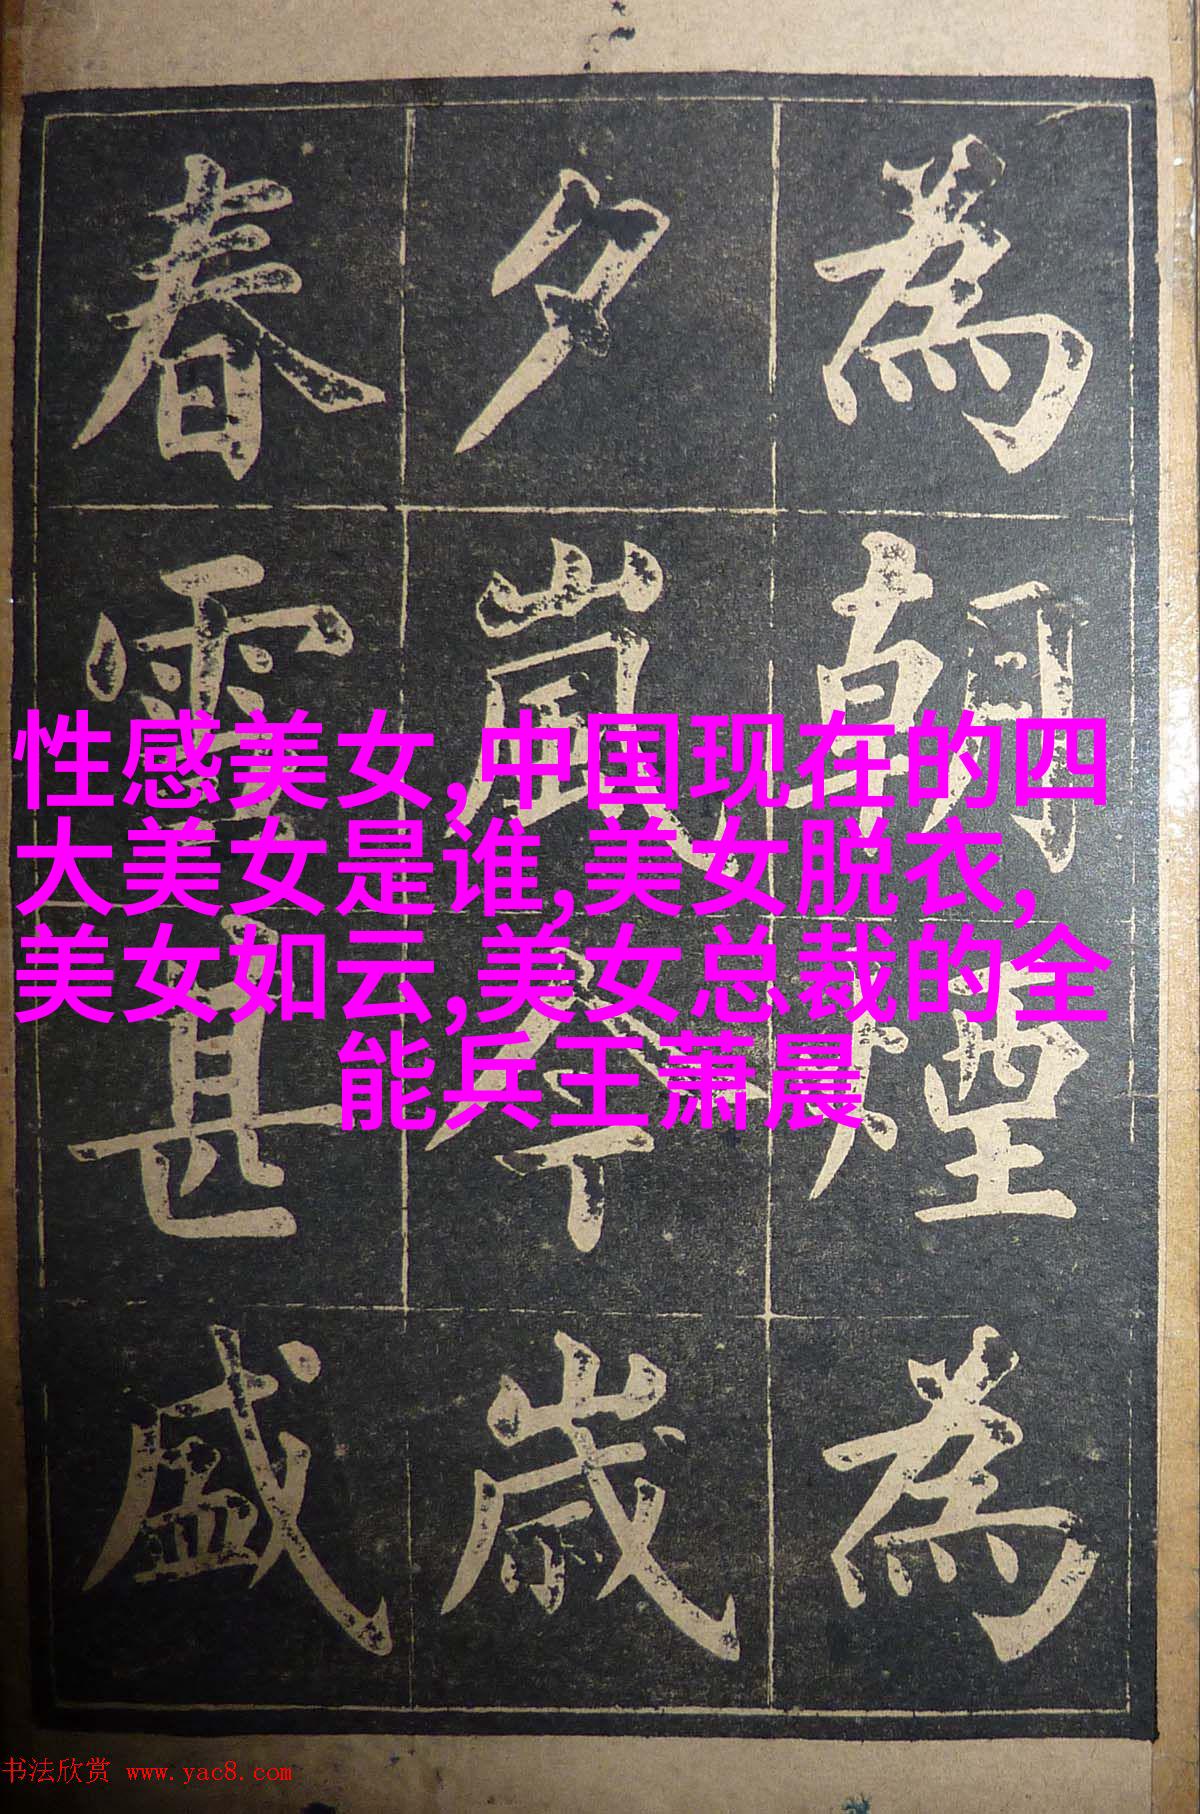 為朝煙為
夕嵐今歳
春雪甚盛
性感美女,中国现在的四
大美女是谁,美女脱衣,
美女如云,美女总裁的全
能兵王萧晨
书法欣赏 www.yac8.com